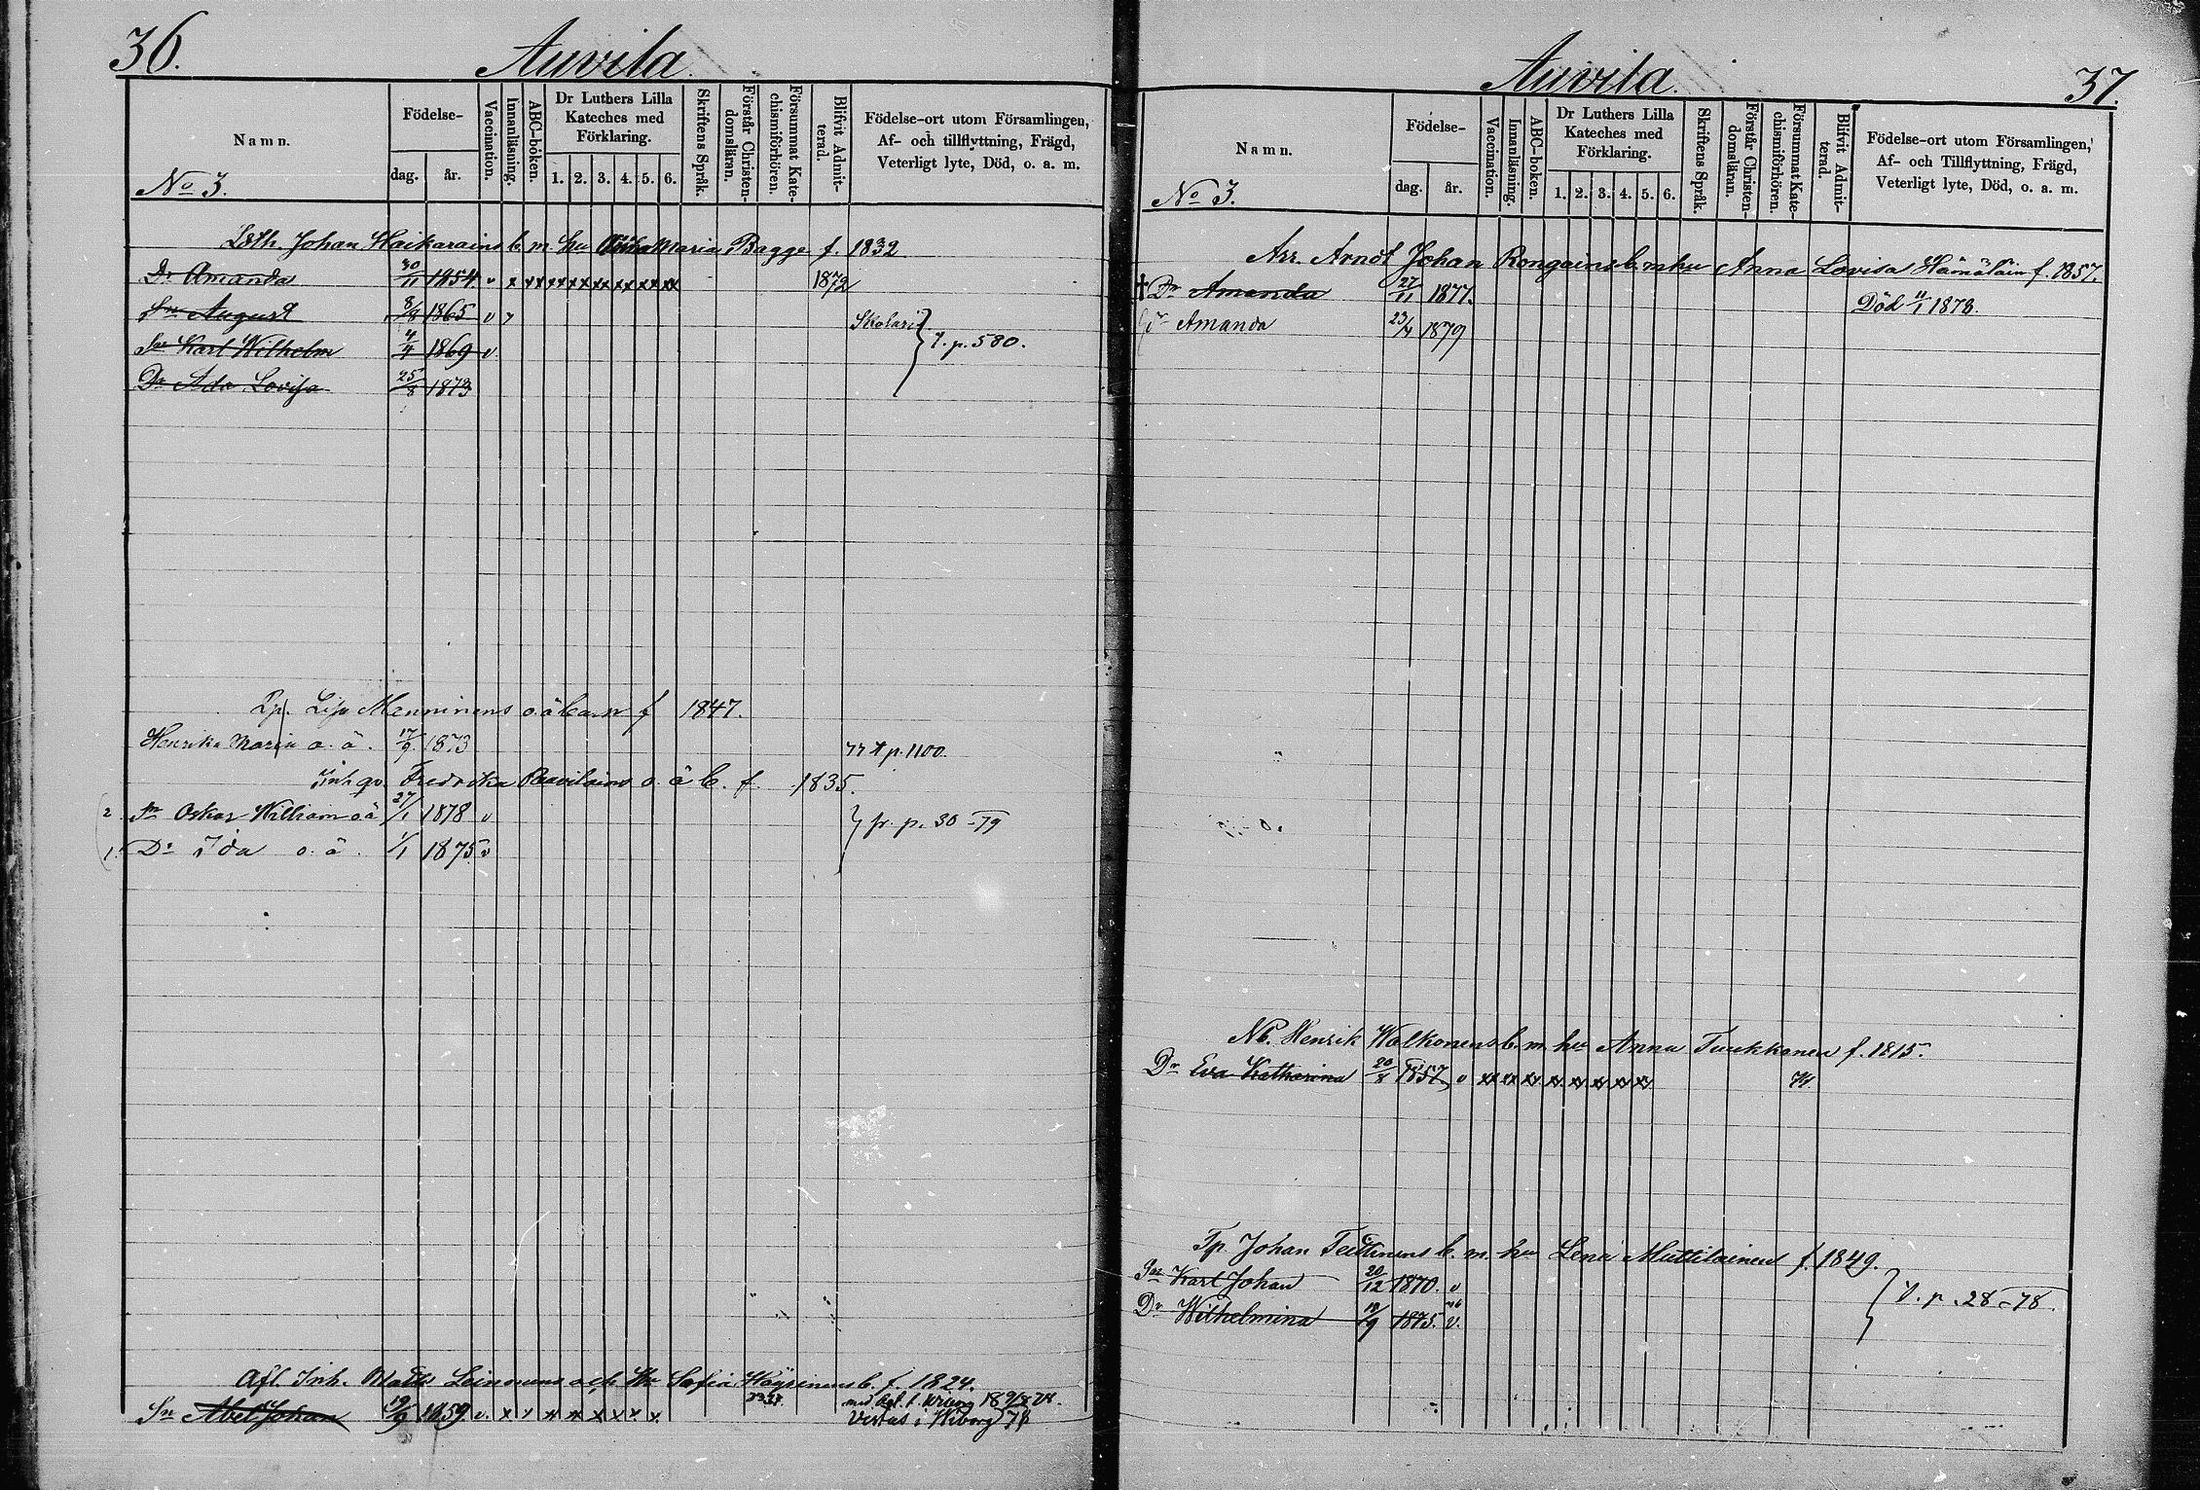 36.
Auvila
Namn.
No 3.
Födelse-
dag.
år.
Vaccination.
Innanläsning.
ABC-boken.
Dr Luthers Lilla
Kateches med
Förklaring.
1. 2. 3. 4. 5. 6.
Skriftens Språk.
Förstår Christen-
domsläran.
Försummat Kate-
chismiförhören.
Blifvit Admit-
terad.
Födelse-ort utom Församlingen,
Af- och tillflyttning, Frägd,
Veterligt lyte, Död, o. a. m.
Johan Haikarains b. m. hu Maria Bagge f. 1832
Dr Amanda 30/11 1854 v x xx xx xx xx xx xx xx 1872
Sn August 1865 v
Skolari
Sn Karl Wilhelm 4/4 1869 v
p. 580.
Dr Ada Lovisa 25/8 1873
Lisa Menninens o ä barn f 1847.
Henrika Maria o. ä. 17/9 1873
77 p. 1100
Inh qv. Fredrika Paavilains o. ä b. f. 1835.
2. Sn Oskar William o ä 27/1 1878 v
fr. p. 30 -79
1. Dr Ida o. ä. 1/1 1875 v
Afl. Inh. Matts Leinonens och Hu Sofia Häyrinens b. f. 1824.
Sn Abel Johan 19/9 1859 v. x x xx xx x x x x
i Wiborg 78
Auvila
37.
Namn.
No 3.
Födelse-
dag.
år.
Vaccination.
Innanläsning.
ABC-boken.
Dr Luthers Lilla
Kateches med
Förklaring.
1. 2. 3. 4. 5. 6.
Skriftens Språk.
Förstår Christen-
domsläran.
Försummat Kate-
chismiförhören.
Blifvit Admit-
terad.
Födelse-ort utom Församlingen,
Af- och Tillflyttning, Frägd,
Veterligt lyte, Död, o. a. m.
Arr. Arndt Johan Rongains b. m hu Anna Lovisa Hämäläin f. 1857.
† Dr Amanda 27/11 1877.
Död 11/1 1878.
Amanda 23/4 1879
Nb. Henrik Walkonens b. m. hu Anna Tuukkanen f. 1815.
Dr Eva Katharina 20/8 1857 v xx xx xx xx xx xx xx xx 74
Tp Johan b. m. hu Lena Muttilainen f. 1849.
Sn Karl Johan 20/12 1870. v
Dr Wilhelmina 18/9 1875. v.
p. 28 -78.